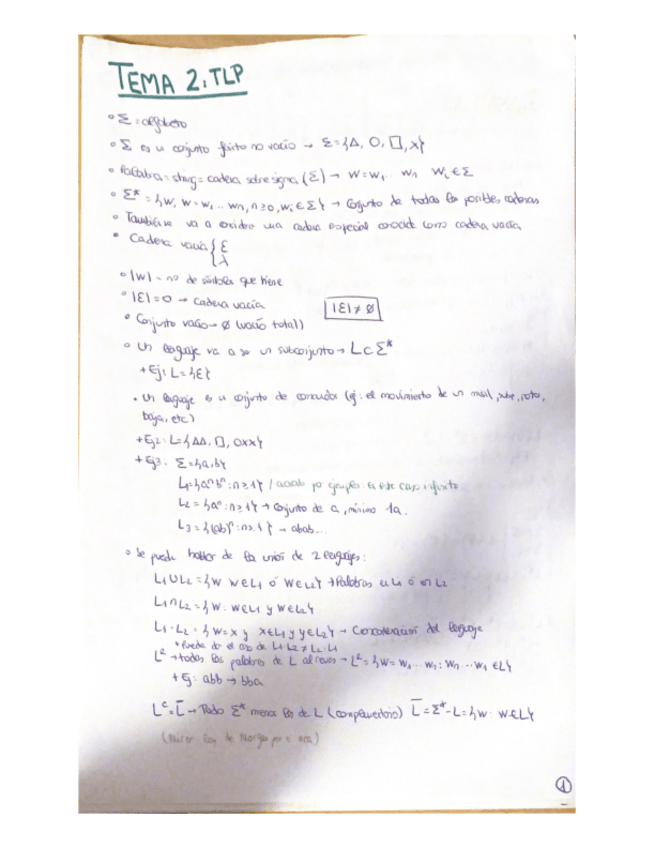 TEMA 2. TLP
◦ Σ = alfabeto
◦ Σ es u conjunto finito no vacío → Σ = {Δ, O, □, x}
◦ Palabra = string = cadena sobre sigma (Σ) → W = w₁ ... wn Wi ∈ Σ
◦ Σ* = {w, w = w₁ ... wn, n ≥ 0, wi ∈ Σ} → Conjunto de todas las posibles cadenas
◦ También va a existir una cadena especial conocida como cadena vacía
• Cadena vacía { ε
λ
◦ |W| → nº de símbolos que tiene
◦ |ε| = 0 → Cadena vacía
|ε| ≠ ∅
• Conjunto vacío → ∅ (vacío total)
◦ Un lenguaje va a ser un subconjunto → L ⊂ Σ*
+ Ej: L = {ε}
• Un lenguaje es un conjunto de comandos (ej: el movimiento de un misil, sube, rota,
baja, etc)
+ Ej2: L = {ΔΔ, □, OXX}
+ Ej3: Σ = {a, b}
L₁ = {aⁿbⁿ : n ≥ 1} / por ejemplo es este caso infinito
L₂ = {aⁿ : n ≥ 1} → Conjunto de a, mínimo 1a.
L₃ = {(ab)ⁿ : n ≥ 1} → abab...
◦ Se puede hablar de la unión de 2 lenguajes:
L₁ ∪ L₂ = {w w ∈ L₁ ó w ∈ L₂} → Palabras en L₁ ó en L₂
L₁ ∩ L₂ = {w : w ∈ L₁ y w ∈ L₂}
L₁ · L₂ = {w = x y x ∈ L₁ y y ∈ L₂} → Concatenación del lenguaje
• Puede el caso de L₁ L₂ ≠ L₂ · L₁
→ todas las palabras de L al reves → = {w = w₁ ... wn : wn ... w₁ ∈ L}
+ Ej: abb → bba
Lᶜ = L̅ → Todo Σ* menos las de L (complementario) L̅ = Σ* - L = {w : w ∉ L}
(Mirar ley de Morgan)
1